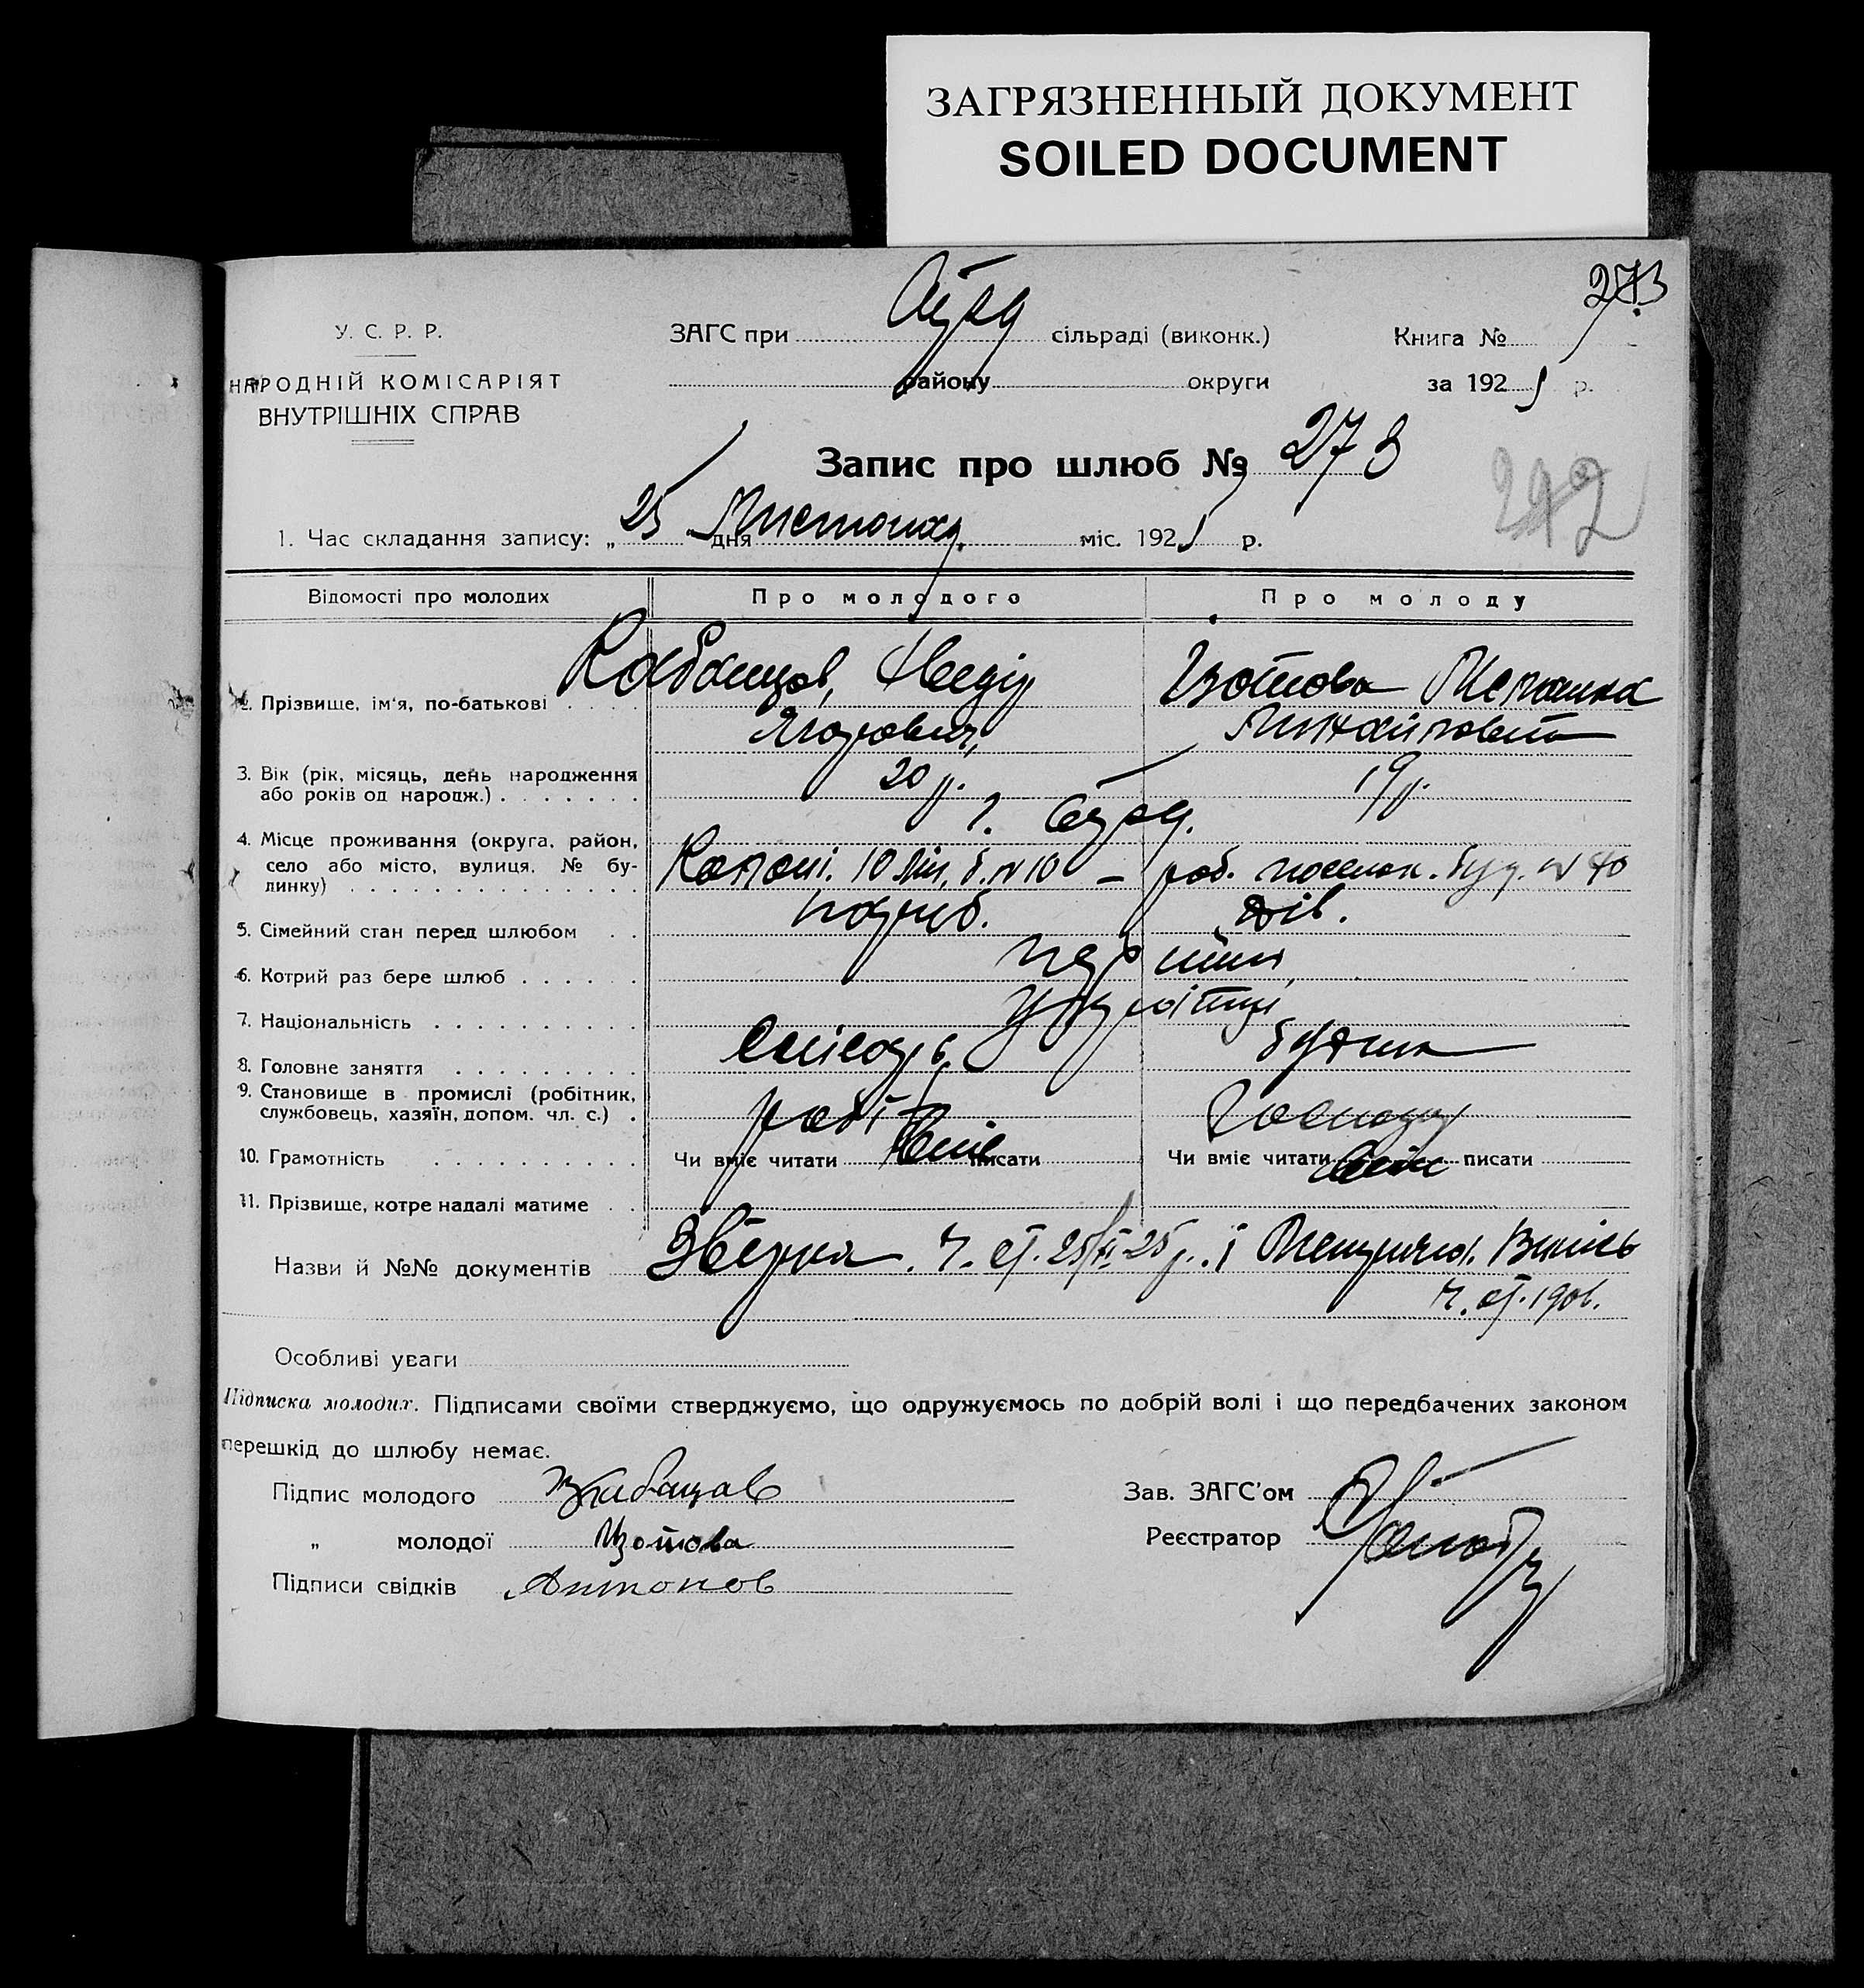 ЗАГРЯЗНЕННЫЙ ДОКУМЕНТ
SOILED DOCUMENT
273
У. С. Р. Р.
НАРОДНІЙ КОМІСАРІЯТ
ВНУТРІШНІХ СПРАВ
ЗАГС при сільраді (виконк.)
району округи
Книга №
за 1925 р.
Запис про шлюб № 273
242
1. Час складання запису: „ 25 дня Листопада міс. 1925 р.
Відомості про молодих Про молодого Про молоду
2. Прізвище, ім'я, по-батькові . . . . Кабанцов, Ізотова
Ягорович,
3. Вік (рік, місяць, день народження 20 р. 19 р.
або років од народж.) . . . . . . .
4. Місце проживання (округа, район,
село або місто, вулиця, № бу-
динку) . . . . . . . . . . . . 10 лін. б. № 10 – роб. буд. № 40
5. Сімейний стан перед шлюбом . . паруб. дів.
6. Котрий раз бере шлюб . . . . . . перший
7. Національність . . . . . . . . . .
8. Головне заняття . . . . . . . . . слюсарь
9. Становище в промислі (робітник,
службовець, хазяїн, допом. чл. с.) . робіт
10. Грамотність . . . . . . . . . . Чи вміє читати вміє писати Чи вміє читати вміє писати
11. Прізвище, котре надалі матиме . .
Назви й №№ документів 25/XI-25 р. і Метрична Випись
1906.
Особливі уваги
Підписка молодих. Підписами своїми стверджуємо, що одружуємось по добрій волі і що передбачених законом
перешкід до шлюбу немає.
Підпис молодого Зав. ЗАГС'ом
„ молодої Изотова Реєстратор
Підписи свідків Антонов